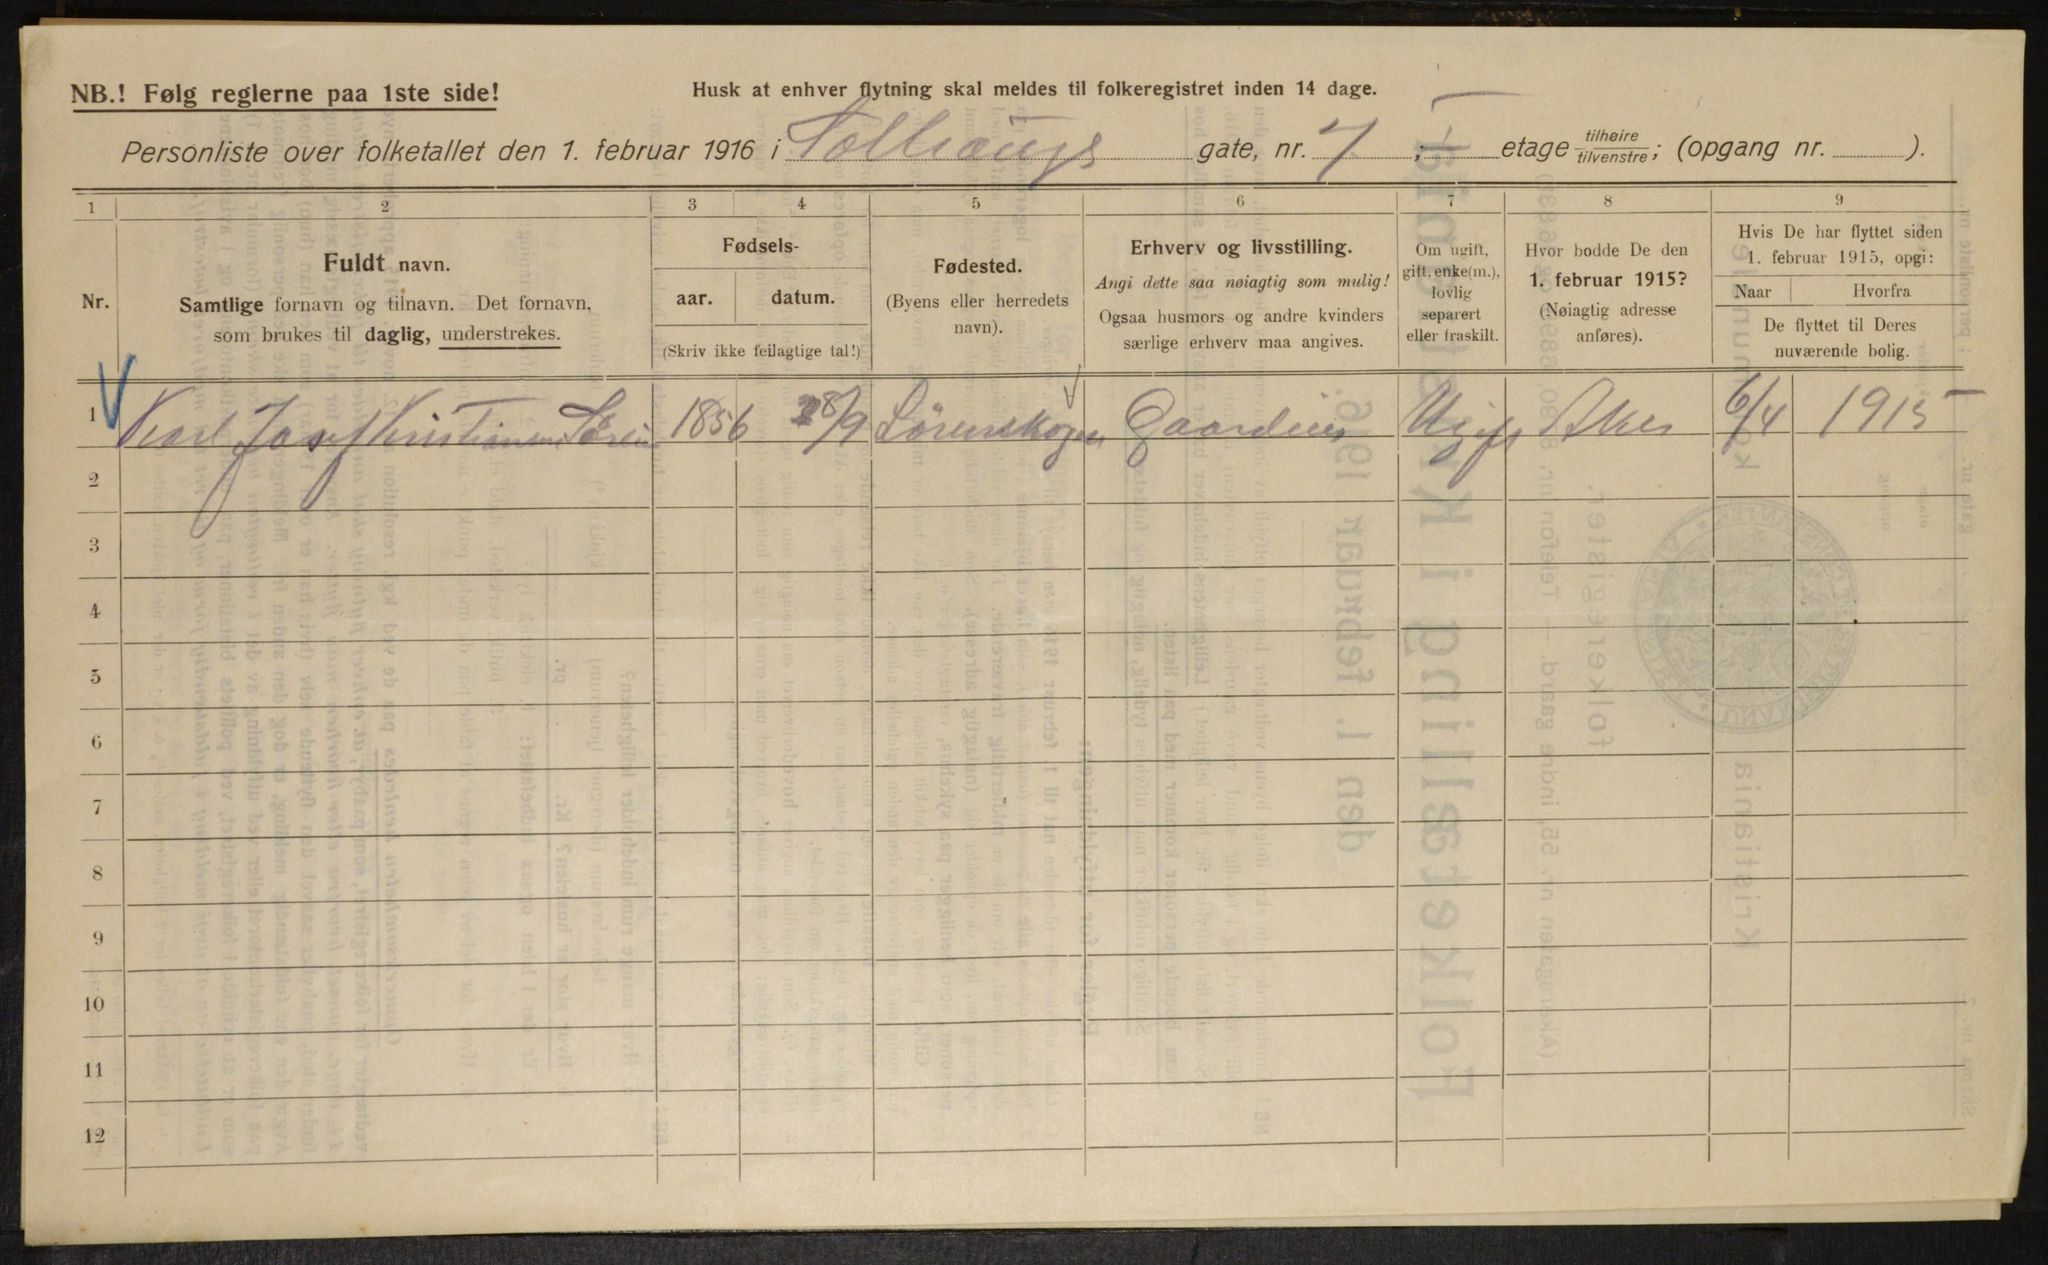 NB.! Følg reglerne paa 1ste side!
Husk at enhver flytning skal meldes til folkeregistret inden 14 dage.
Personliste over folketallet den 1. februar 1916 i Solhaugs gate, nr. 7 ; — etage tilhøire/tilvenstre; (opgang nr. ).
1 2 3 4 5 6 7 8 9
Nr.
Fuldt navn.
Samtlige fornavn og tilnavn. Det fornavn,
som brukes til daglig, understrekes.
Fødsels-
aar. datum.
(Skriv ikke feilagtige tal!)
Fødested.
(Byens eller herredets
navn).
Erhverv og livsstilling.
Angi dette saa nøiagtig som mulig!
Ogsaa husmors og andre kvinders
særlige erhverv maa angives.
Om ugift,
gift, enke(m.),
lovlig
separert
eller fraskilt.
Hvor bodde De den
1. februar 1915?
(Nøiagtig adresse
anføres).
Hvis De har flyttet siden
1. februar 1915, opgi:
Naar Hvorfra
De flyttet til Deres
nuværende bolig.
1 Karl Josef Kristiansen 1856 28/9 Lørenskogen Gaardeier Ugift Aker 6/4 1915
2
3
4
5
6
7
8
9
10
11
12